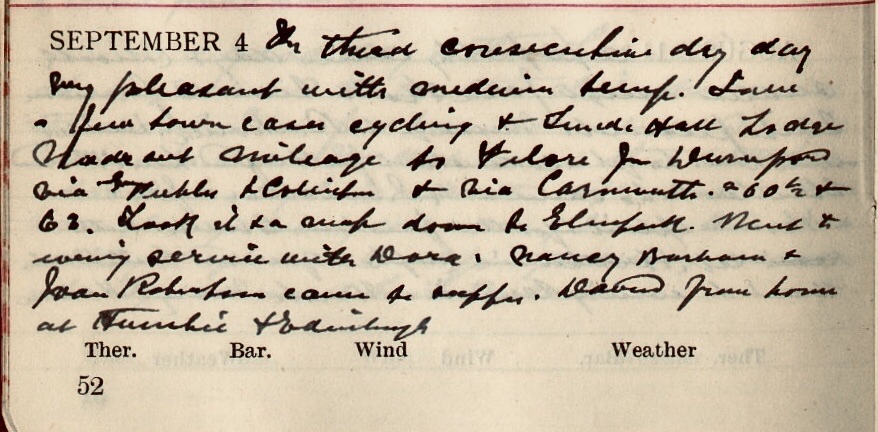 SEPTEMBER 4 The third consecutive dry day
very pleasant with medium temp. Saw
a few town cases cycling & Hall Lodge
Made out mileage to & from for
via Peebles & Colinton & via Carnwath. 60½ &
63. Took it & a map down to Elmpark. Went to
evening service with Dora. Nancy &
Joan Robertson came to supper. David from home
at Humbie & Edinburgh
Ther. Bar. Wind Weather
52